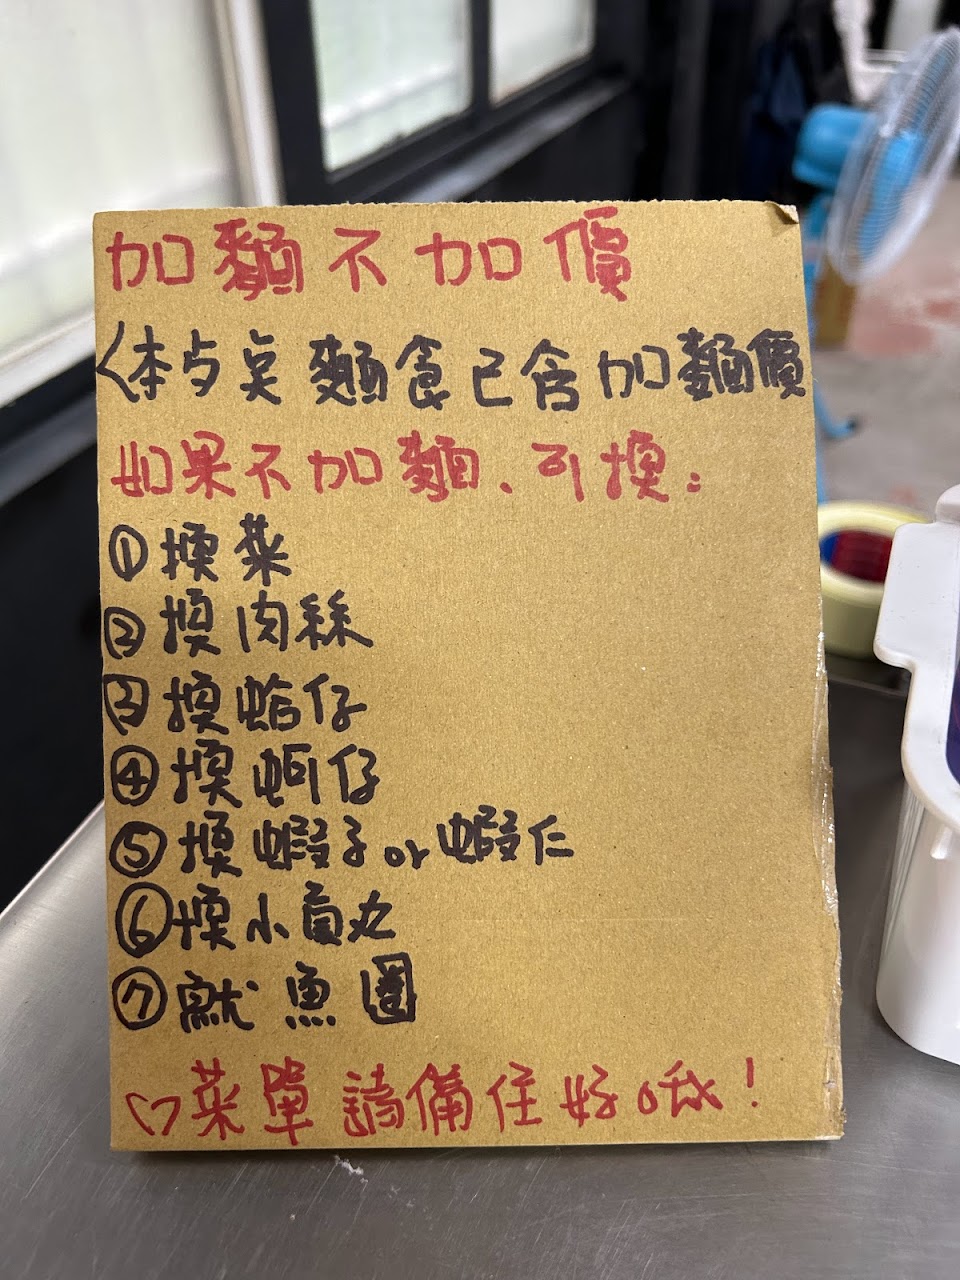 加麵不加價
〈本店麵食已含加麵價
如果不加麵、可換:
①換菜
②換肉絲
③換蛤仔
④換蚵仔
⑤換蝦子or蝦仁
⑥換小貢丸
⑦魷魚圈
♡菜單請備住好哦!